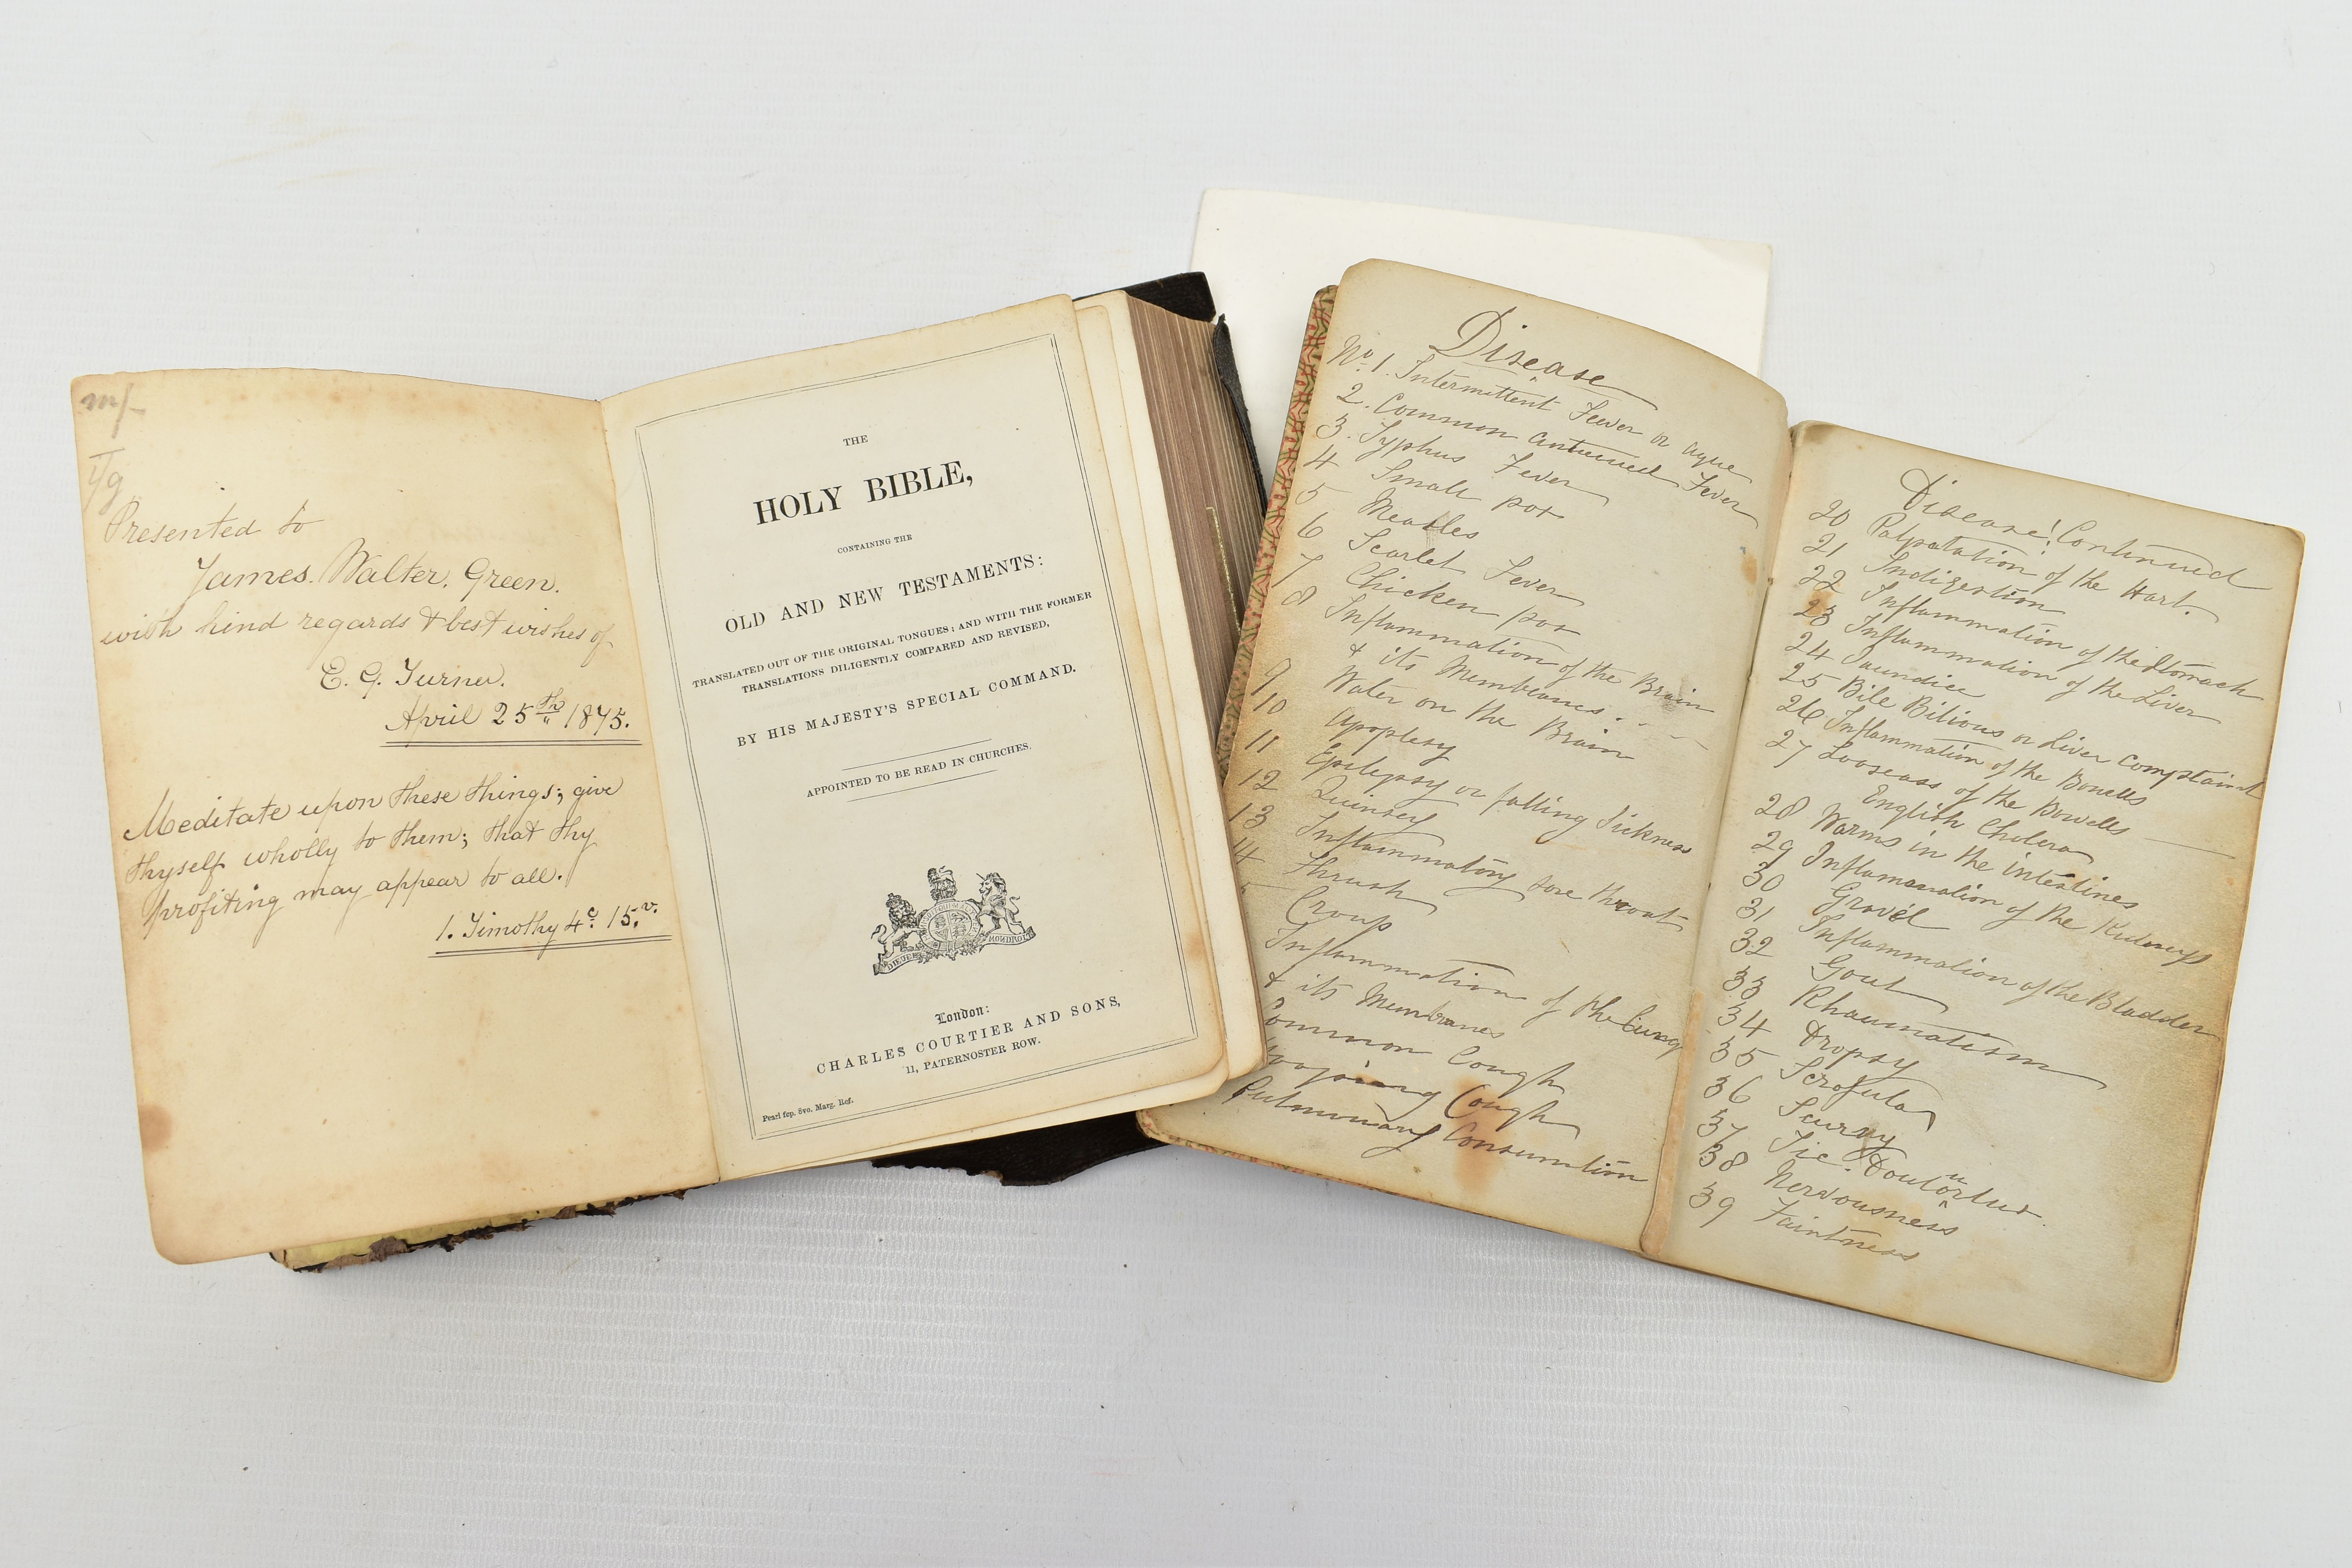 m/-
i/g
Presented to
James. Walter. Green.
with kind regards & best wishes of
E. G. Turner.
April 25th 1875.
Meditate upon these things; give
thyself wholly to them; that thy
profiting may appear to all.
1. Timothy 4c. 15v.
THE
HOLY BIBLE,
CONTAINING THE
OLD AND NEW TESTAMENTS:
TRANSLATED OUT OF THE ORIGINAL TONGUES; AND WITH THE FORMER
TRANSLATIONS DILIGENTLY COMPARED AND REVISED,
BY HIS MAJESTY'S SPECIAL COMMAND.
APPOINTED TO BE READ IN CHURCHES.
London:
CHARLES COURTIER AND SONS,
11, PATERNOSTER ROW.
Pearl fcp. 8vo. Marg. Ref.
Disease
No. 1. Intermittent Fever or ague
2. Common Fever
3. Typhus Fever
4 Small pox
5 Measles
6 Scarlet Fever
7 Chicken pox
8 Inflammation of the Brain
& its Membranes
9 Water on the Brain
10 Apoplexy
11 Epilepsy or falling Sickness
12 Quinsey
13 Inflammatory sore throat
14 Thrush
5 Croup
Inflammation of the Lungs
& its Membranes
Common Cough
Cough
Pulmonary Consumtion
Disease! Continued
20 Palpatation of the Hart.
21 Indigestion
22 Inflammation of the Stomach
23 Inflammation of the Liver
24 Jaundice
25 Bile Bilious or Liver Complaint
26 Inflammation of the Bowells
27 Looseass of the Bowells
English Cholera
28 Warms in the intestines
29 Inflamanation of the Kidneys
30 Gravel
31 Inflammation of the Bladder
32 Gout
33 Rhaumatism
34 Dropsy
35 Scrofula
36 Scurvy
37 Tic.
38 Nervousness
39 Faintness